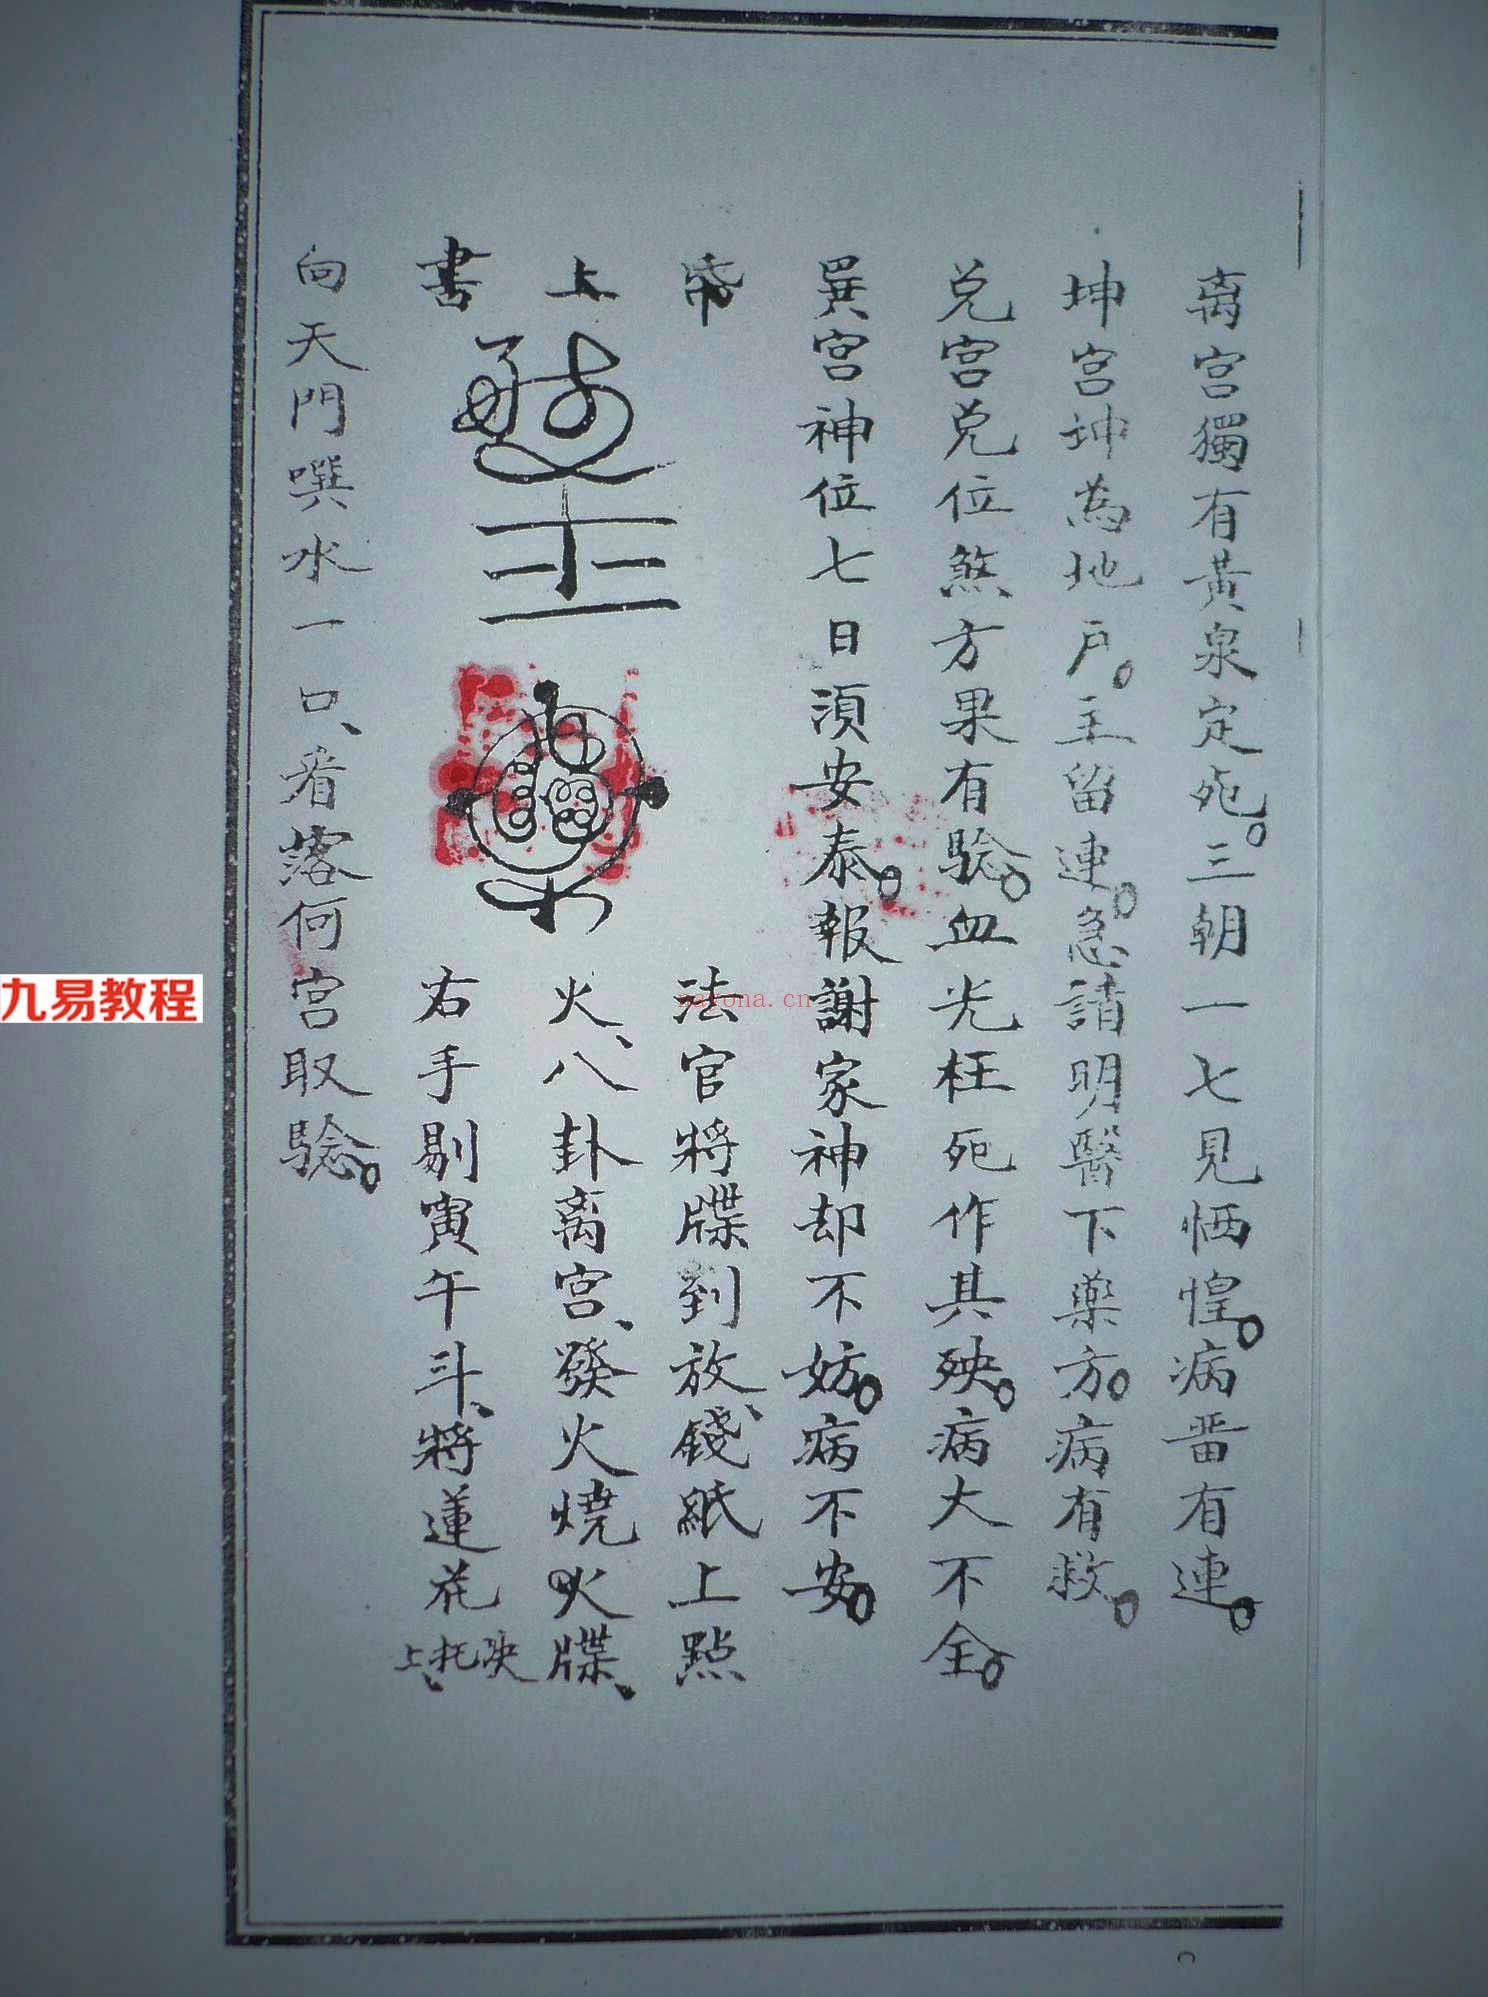 离宮獨有黃泉定死。三朝一七見恓惶。病畨有連。
坤宮坤為地户。主留連。急請明醫下藥方。病有救。
兑宮兑位煞方果有騐。血光枉死作其殃。病大不全。
巽宮神位七日湏安泰。報謝家神却不妨。病不安。
帝
法官將牒到放、錢紙上㸃
上
火、八卦离宮、發火燒火牒、
書
右手剔寅午斗、將蓮花
上、托
向天門噀水一口、看落何宮取騐。
九易教程
nayona.cn